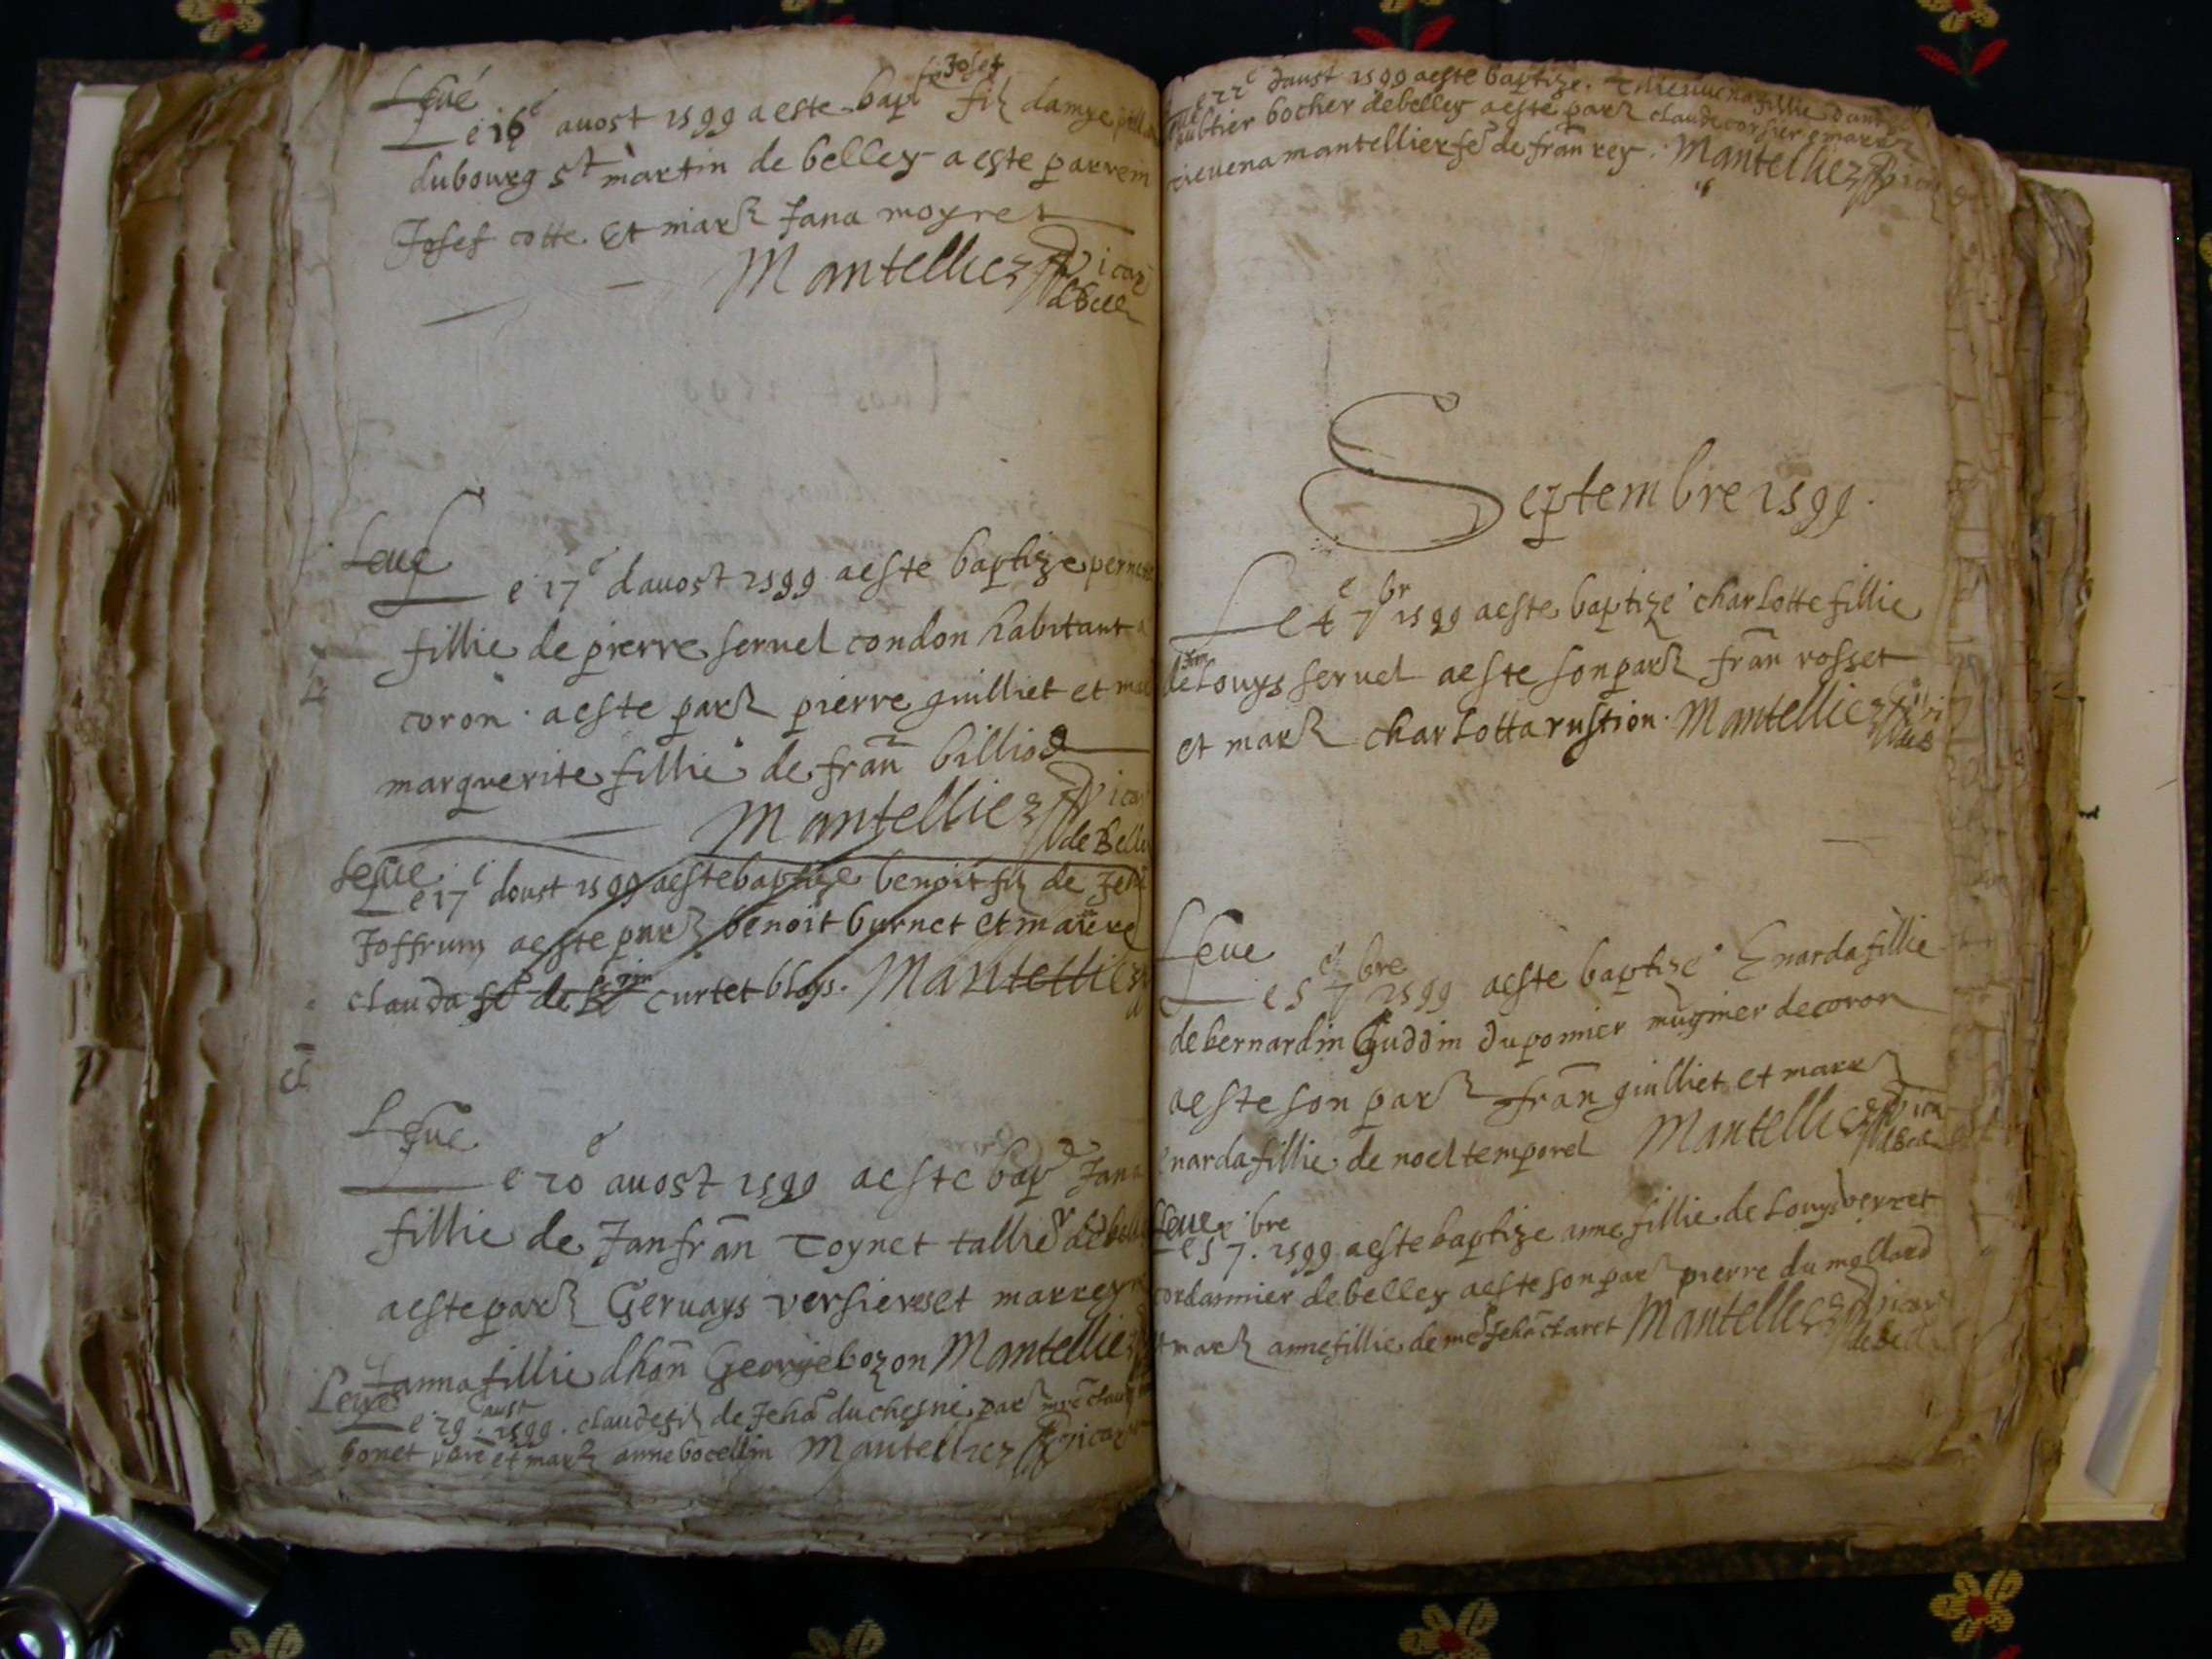 Leué
Le 16e auost 1599 a este bapt Josef filz damye
du bourg st martin de belley a este parrein
Josef cotte. Et mark Jana moyret
Mantellier vicare
de Bell
Leué
Le 17e dauost 1599. a este baptize
fillie de pierre seruel condon habitant a
coron. a este park pierre guilliet et
marguerite fillie de fran billiod
Mantellier vica
de Belle
Leué
Le 17e doust 1599 a este baptize benoit filz de
Joffrum a este park benoit burnet et
clauda fe de curtet bloys. Mantellier
Leué
Le 20e auost 1599 a este bap Jana
fillie de Janfran Toynet tallier de
a este park Geruays versieres et
Janna fillie dhan George bozon Mantellier
Leué
Le 29e aust 1599. claude filz de Jehan duchesne. park
bonet et mark anne bocellin Mantellier vicar
Le 22e daust 1599 a este baptize. fillie
bocher de belley a este park claude
mantellier fe de fran rey. Mantellier
Septembre 1599.
Le 4e 7br 1599 a este baptize charlotte fillie
de Louys seruel a este son park fran rosset
et mark charlotta rustion. Mantellier
Leue
Le 5e 7bre 1599 a este baptize Enarda fillie
de bernardin Guddin du ponnier mugnier de coron
a este son park fran guilliet et mark
enarda fillie de noel temporel Mantellier vica
Leue
Le 5e 7bre. 1599 a este baptize anne fillie de Louys verret
cordannier de belley a este son park pierre du mollard
et mark anne fillie de me Jehan claret Mantellier vicar
de bell